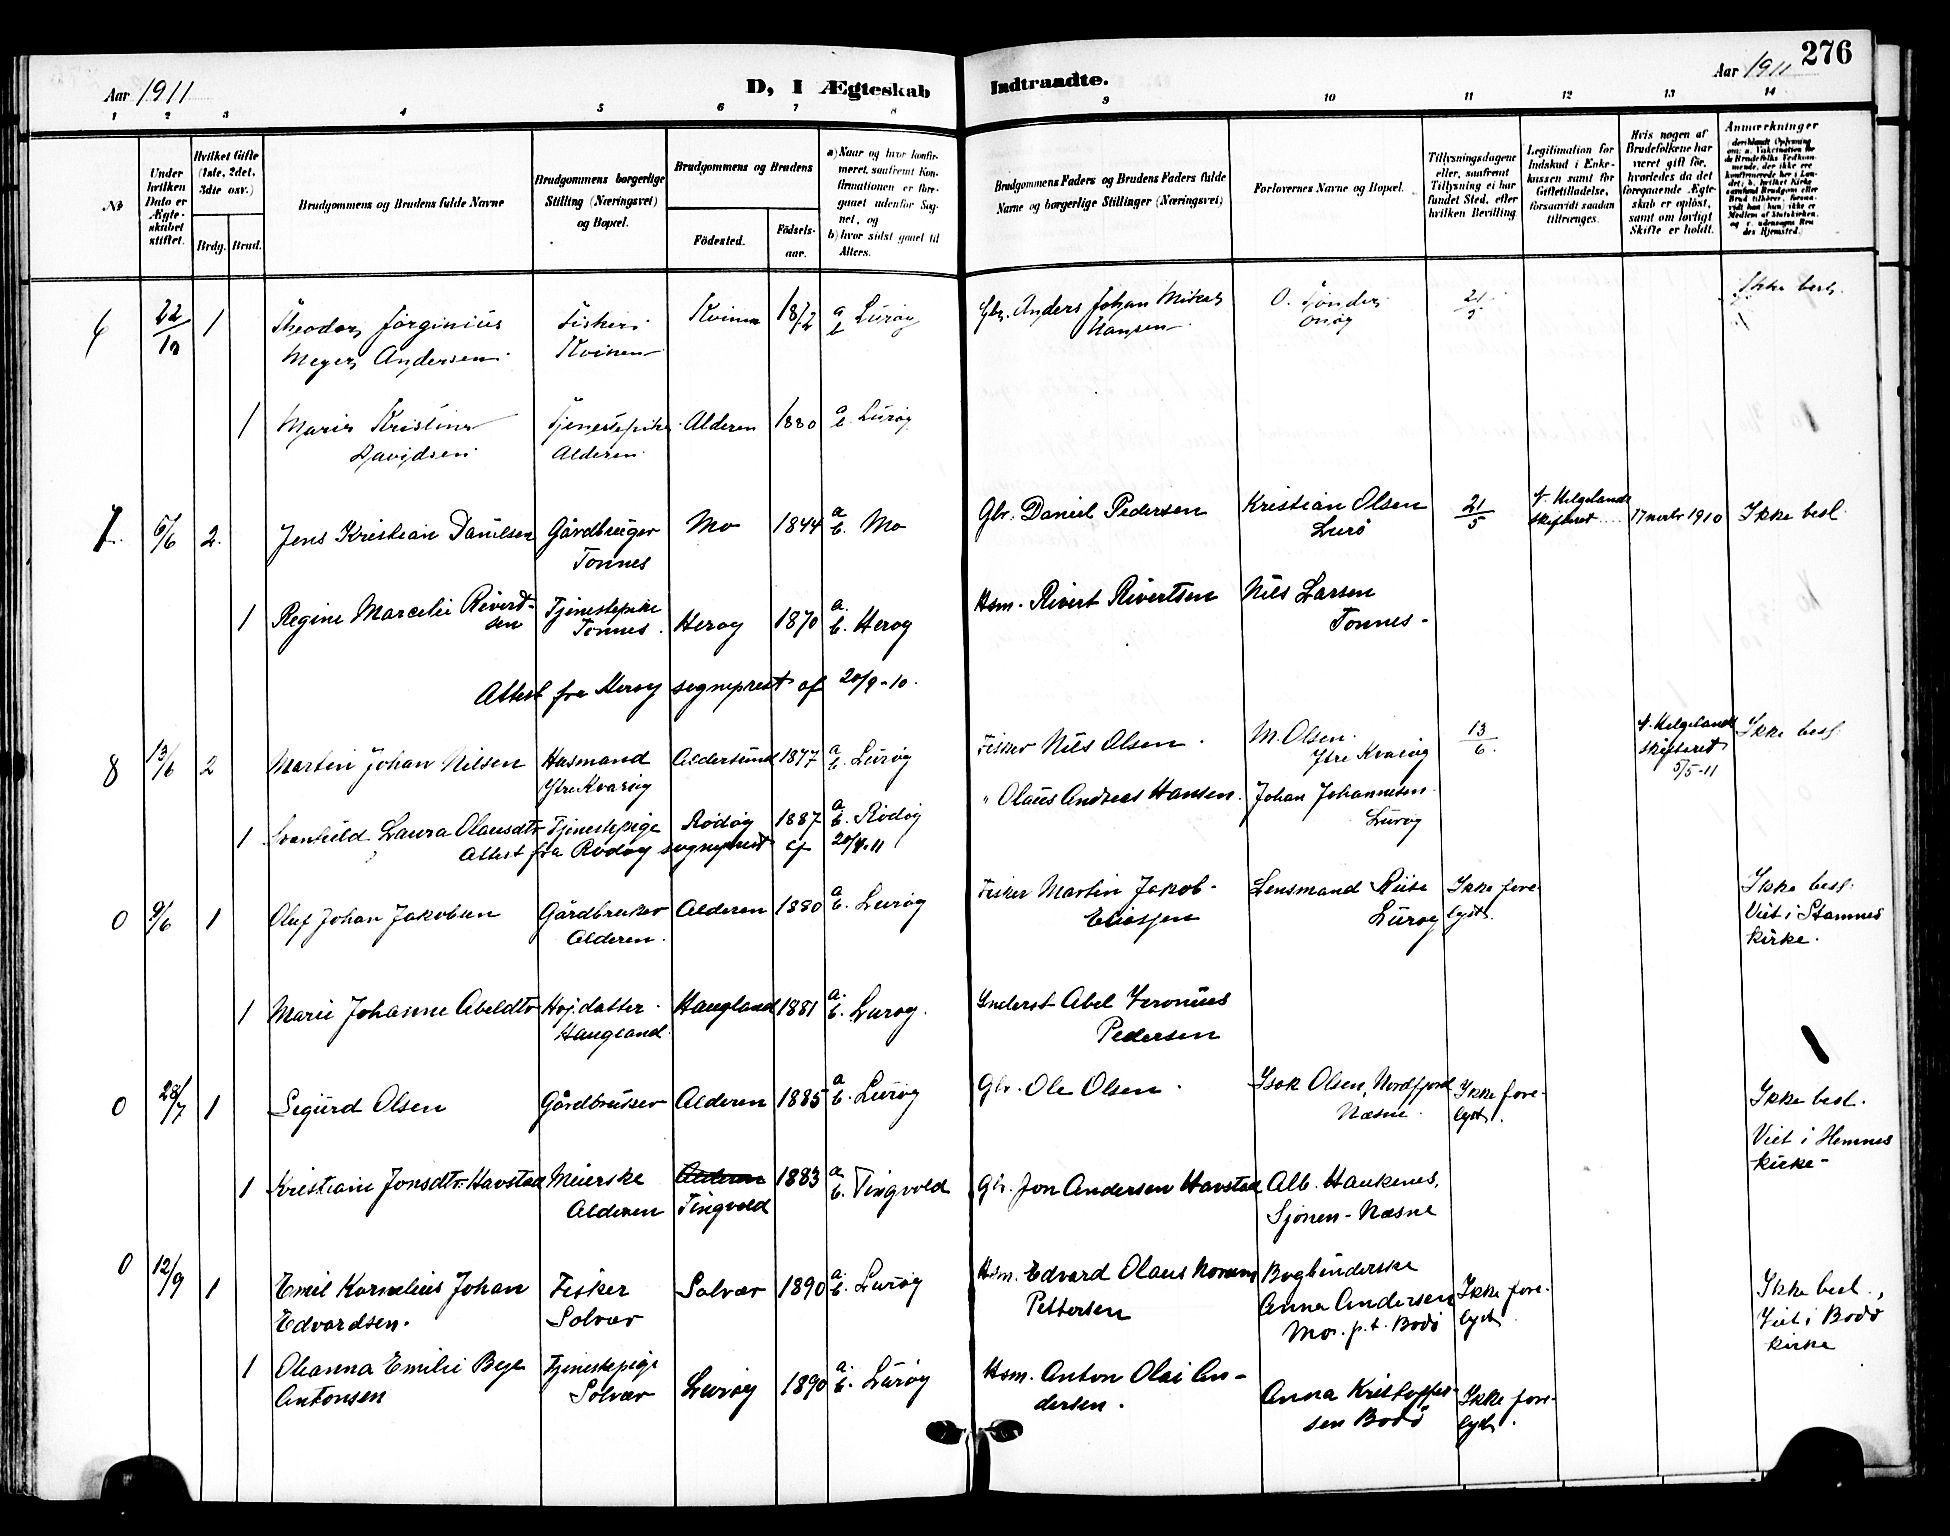 276
Aar 1911
D, I Ægteskab Indtraadte.
Aar 1911
1 2 3 4 5 6 7 8 9 10 11 12 13 14
No
Under hvilken Dato er Ægteskabet stiftet.
Hvilket Gifte (1ste, 2det, 3die osv.)
Brdg. Brud.
Brudgommens og Brudens fulde Navne
Brudgommens borgerlige Stilling (Næringsvei) og Bopæl.
Brudgommens og Brudens
Födested.
Födselsaar.
a) Naar og hvor konfirmeret, saafremt Konfirmationen er foregaaet udenfor Sognet, og
b) hvor sidst gaaet til Alters.
Brudgommens Faders og Brudens Faders fulde Navne og borgerlige Stillinger (Næringsvei)
Forlovernes Navne og Bopæl.
Tillysningsdagene eller, saafremt Tillysning ei har fundet Sted, efter hvilken Bevilling.
Legitimation for Indskud i Enkekassen samt for Giftetilladelse, forsaavidt saadan tiltrænges.
Hvis nogen af Brudefolkene har været gift før, hvorledes da det foregaaende Ægteskab er opløst, samt om lovligt Skifte er holdt.
Anmærkninger
22/10 1 Theodor Jørginius Fisker Kvinen 1872 a b Lurøy Gbr. Anders Johan Mikal O. Tønder 21/5 Ikke besl.
Meyer Andersen. Kvinen Hansen Onøy
1 Marie Kristine Tjenestepike Alderen 1880 a b. Lurøy
Davidsen. Alderen.
7. 5/6 2. Jens Kristian Danilsen Gårdbruger Mo 1844 a b. Mo Gbr. Daniel Pedersen Kristian Olsen 21/5 N. Helgelands skifteret 17 novbr 1910 Ikke besl
Tonnes Lurö
1 Regine Marcelie Rivertsen Tjenestepike Herøy 1870 a. b. Herøy Hsm. Rivert Rivertsen Nils Larsen
Tonnes. Tonnes -
Attest fra Herøy sogneprest af 20/9-10.
8 13/6 2 Martin Johan Nilsen Husmand Aldersund 1877 a b. Lurøy Fisker Nils Olsen. M. Olsen. 13/6. N. Helgelands skifteret 5/5-11 Ikke besl.
Ytre Kvarøy Ytre Kvarøy
1 Svanhild Laura Olausdtr Tjenestepige Rödöy 1887 a b. Rödöy " Olaus Andreas Hansen. Johan Johannesen.
Lurøy
Attest fra Rödöy sogneprest af 20/4-11
0 9/6 1 Oluf Johan Jakobsen Gårdbruker Alderen 1880 a b. Lurøy Fisker Martin Jakob Lensmand Riise Ikke forelyst. Ikke besl.
Alderen. Eliassen Lurøy Viet i Stamnes kirke.
1 Marie Johanne Abeldtr Hojdatter. Haugland 1881 a. b. Lurøy. Inderst Abel Jeronius
Haugland. Pedersen
0 28/7 1 Sigurd Olsen Gårdbruker Alderen 1885 a b. Lurøy Gbr. Ole Olsen. Isak Olsen, Nordfjord Ikke forelyst. Ikke besl.
Næsne. Viet i Hemnes kirke -
1 Kristiane Jonsdtr. Havstad Meierske Alderen 1883 a. b. Tingvold Gbr. Jon Andersen Havstad Alb. Haukenes,
Alderen Tingvold Sjonen - Næsne
0 12/9 1 Emil Kornelius Johan Fisker Solvær 1890 a. b. Lurøy Hsm. Edvard Olaus Norum Bogbinderske
Edvardsen. Solvær Pettersen Anna Andersen Ikke forelyst. Ikke besl.,
Mo. p. t. Bodö Viet i Bodö kirke
1 Oleanna Emilie Beje Tjenestepige Lurøy 1890 a. b. Lurøy Hsm. Anton Olai Andersen. Anna Kristoffersen Bodö Ikke forelyst.
Antonsen Solvær